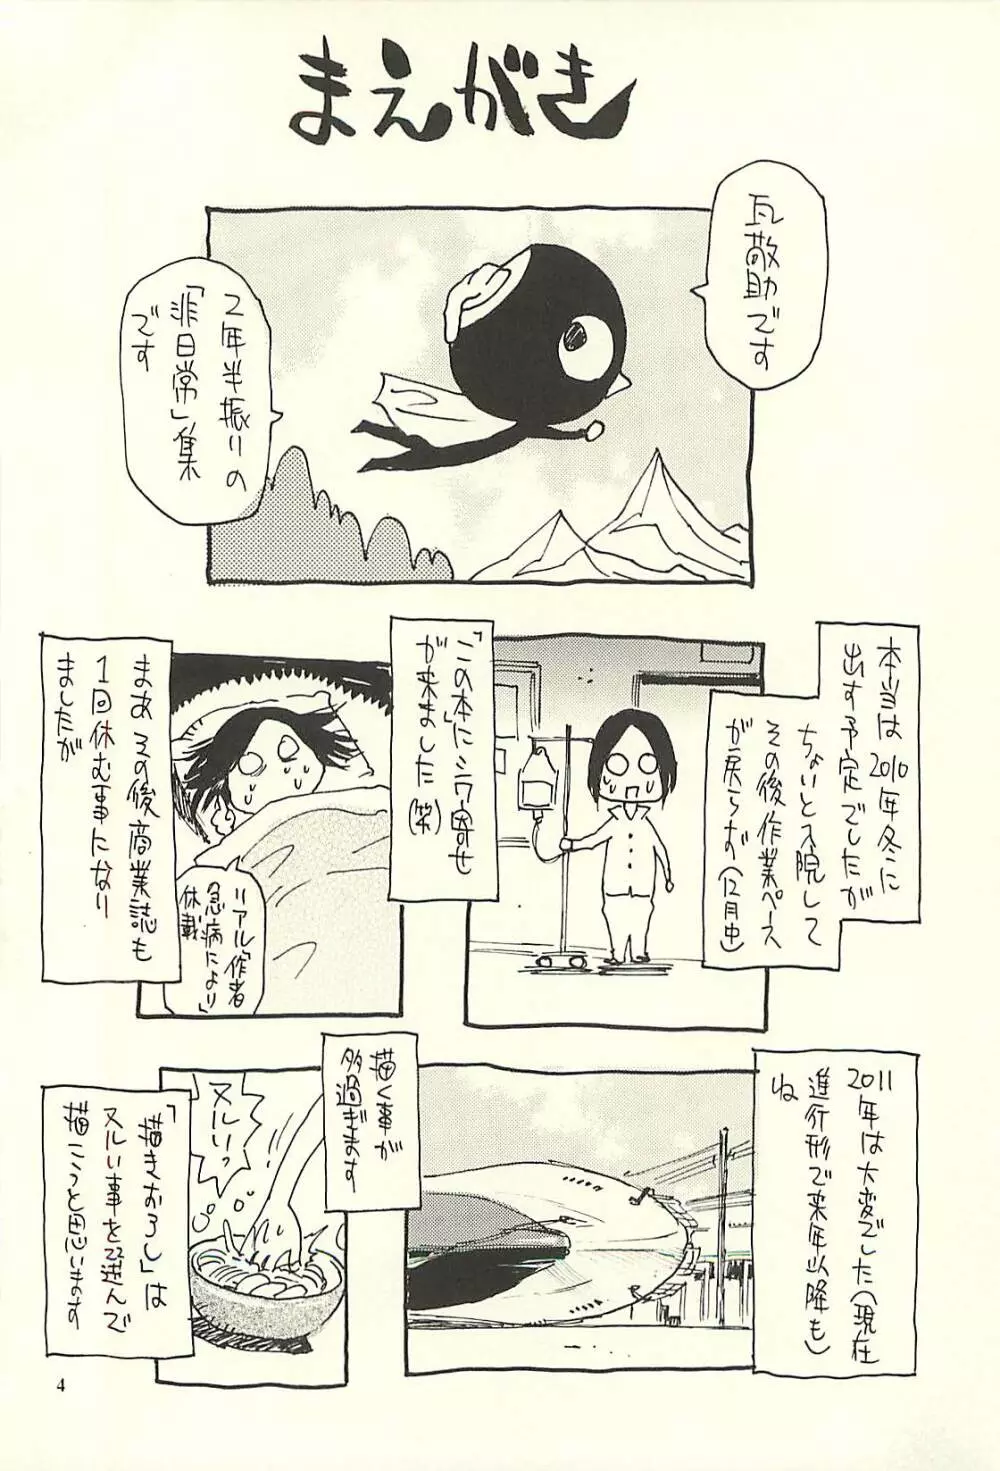 まえがき
瓦敬助です
2年半振りの
「非日常」集
です
本当は2010年冬に
出す予定でしたが
ちょいと入院して
その後作業ペース
が戻らず(12月中)
「この本」にシワ寄せ
が来ました(笑)
まあその後商業誌も
1回休む事になり
ましたが
リアル「作者
急病により」
休載
2011
年は大変でした(現在
進行形で来年以降も)
ね
描く事が
多過ぎます
ヌルいっ
「描きおろし」は
ヌルい事を選んで
描こうと思います
4